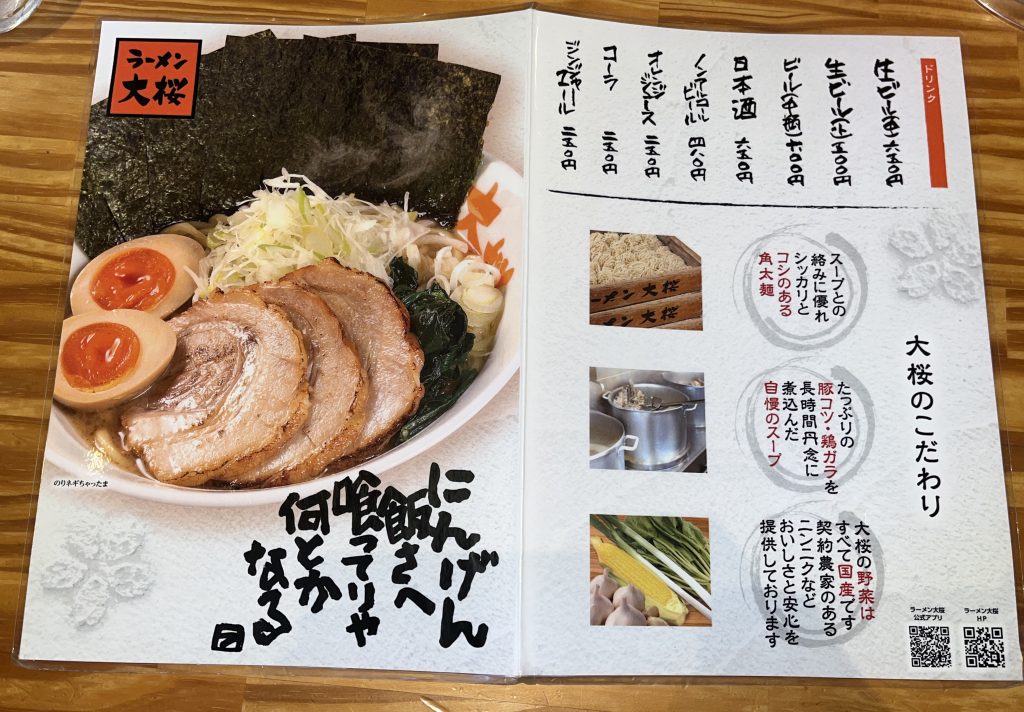 ラーメン
大桜
大桜
のりネギちゃったま
にんげん
飯さへ
喰ってりゃ
何とか
なる
ドリンク
生ビール(中)六五〇円
生ビール(小)五〇〇円
ビール(中瓶)七〇〇円
日本酒 六五〇円
ノンアルコールビール 四八〇円
オレンジジュース 二五〇円
コーラ 二五〇円
ジンジャーエール 二五〇円
大桜のこだわり
スープとの
絡みに優れ
シッカリと
コシのある
角太麺
ラーメン 大桜
ラーメン 大桜
たっぷりの
豚コツ・鶏ガラを
長時間丹念に
煮込んだ
自慢のスープ
大桜の野菜は
すべて国産です
契約農家のある
ニンニクなど
おいしさと安心を
提供しております
ラーメン大桜
公式アプリ
ラーメン大桜
HP